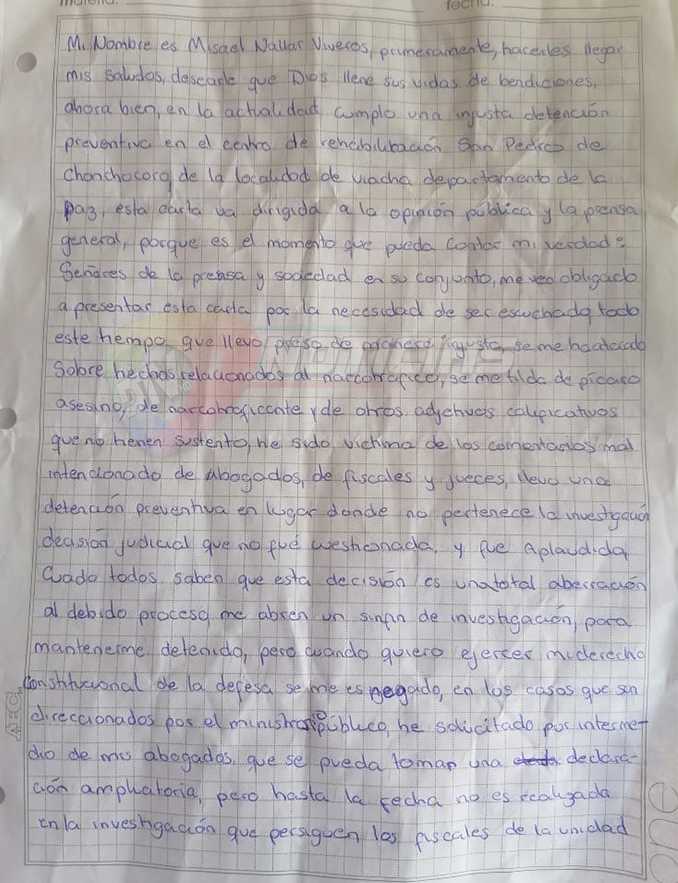 fecha:
Mi Nombre es Misael Nallar Viveros, primeramente, hacerles llegar
mis saludos, desearle que Dios llene sus vidas de bendiciones,
ahora bien, en la actualidad cumplo una injusta detención
preventiva en el centro de rehabilitación San Pedro de
Chonchocoro, de la localidad de viacha departamento de la
paz, esta carta va dirigida a la opinión pública y la prensa
general, porque es el momento que pueda contar mi verdad:
Señores de la prensa y sociedad en su conjunto, me veo obligado
a presentar esta carta por la necesidad de ser escuchado, todo
este tiempo que llevo preso de manera injusta, se me ha atacado
Sobre hechos relacionados al narcotrafico, se me tilda, de picaro
asesino, de narcotraficante y de otros adjetivos calificativos
que no tienen sustento, he sido victima de los comentarios mal
intencionado de abogados, de fiscales y jueces, llevo una
detención preventiva en lugar donde no pertenece la investigación
decisión judicial que no fué cuestionada, y fue aplaudida,
Cuado todos saben que esta decisión es una total aberración
al debido proceso, me abren un sinfin de investigación, para
mantenerme detenido, pero cuando quiero ejercer mi derecho
Constitucional de la defesa se me es negado, en los casos que son
direccionados por el ministerio público, he solicitado por interme-
dio de mis abogados, que se pueda tomar una declara-
ción ampliatoria, pero hasta la fecha no es realizada
en la investigación que persiguen los fiscales de la unidad
one